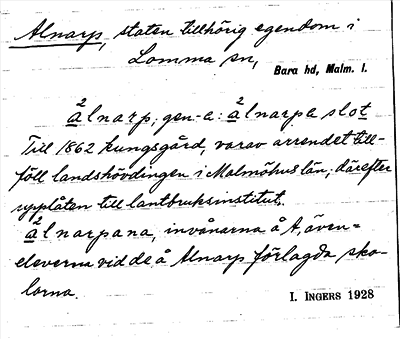 Alnarp, staten tillhörig egendom i
Lomma sn,
Bara hd, Malm. l.
a²lnarp, gen-a: a²lnarpa slot
Till 1862 kungsgård, varav arrendet till-
föll landshövdingen i Malmöhus län; därefter
upplåten till lantbruksinstitut.
a²lnarpana, invånarna å A, även =
eleverna vid de å Alnarp förlagda sko-
lorna.
I. INGERS 1928